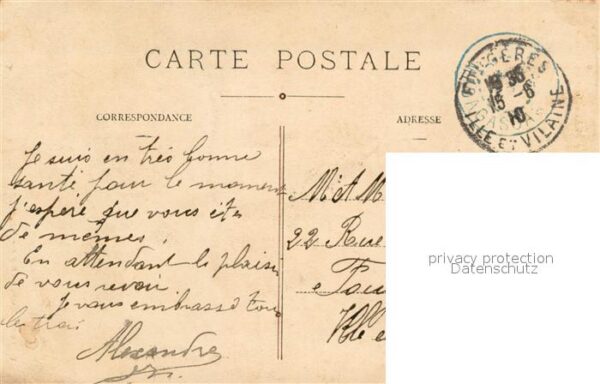 CARTE POSTALE
CORRESPONDANCE
ADRESSE
FOUGÈRES
15 -6
10
ILLE ET VILAINE
Je suis en très bonne
santé pour le moment
j'espère que vous êtes
de mêmes.
En attendant le plaisir
de vous revoir
Je vous embrasse tous
le trai
Alexandre
M A M
22 Rue
Fou
Ille e
privacy protection
Datenschutz